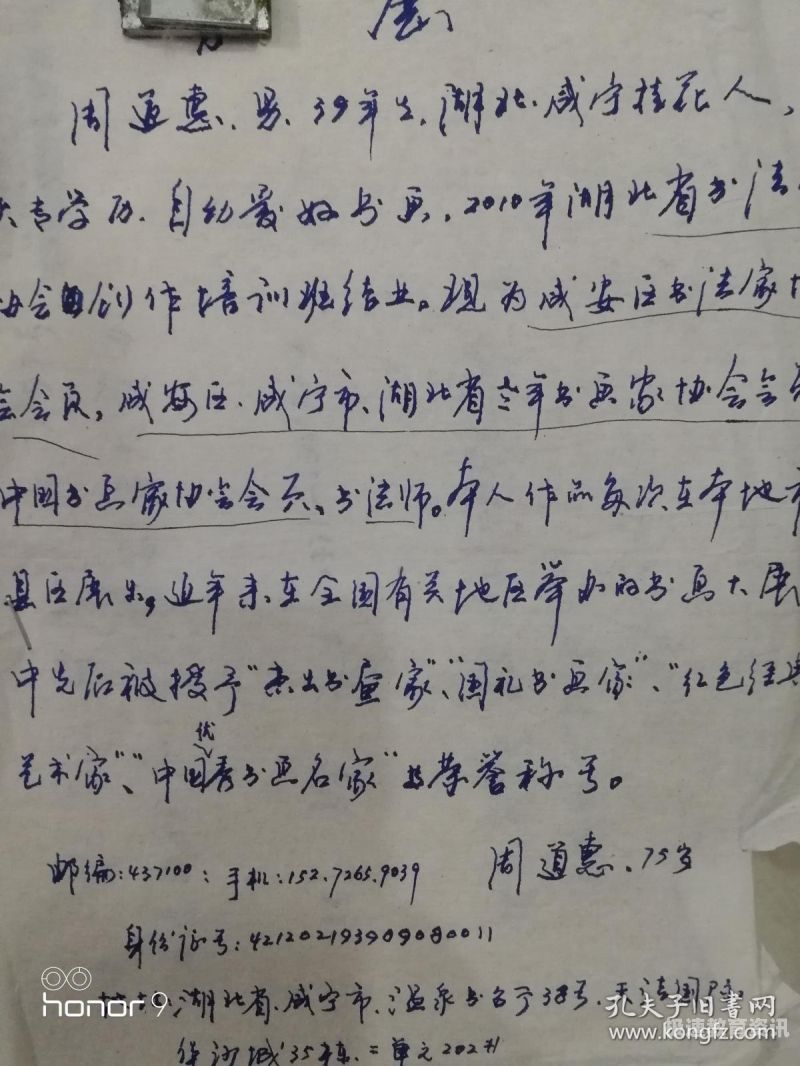 周道惠、男、39年生,湖北·咸宁桂花人,
大专学历、自幼爱好书画,2010年湖北省书法
协会创作培训班结业。现为咸安区书法家协
会会员,咸安区、咸宁市、湖北省老年书画家协会会员
中国书画家协会会员、书法师。本人作品每次在本地市
县区展出,近年来在全国有关地区举办的书画大展
中先后被授予"杰出书画家"、"国礼书画家"、"红色经典
艺术家"、"中国优秀书画名家"等荣誉称号。
邮编:437100:手机:152.7265.9039 周道惠、75岁
身份证号:421202193909080011
地址:湖北省、咸宁市、温泉书台街38号、
35栋、二单元202
honor 9
孔夫子旧书网
www.kongfz.com
极速教育资讯